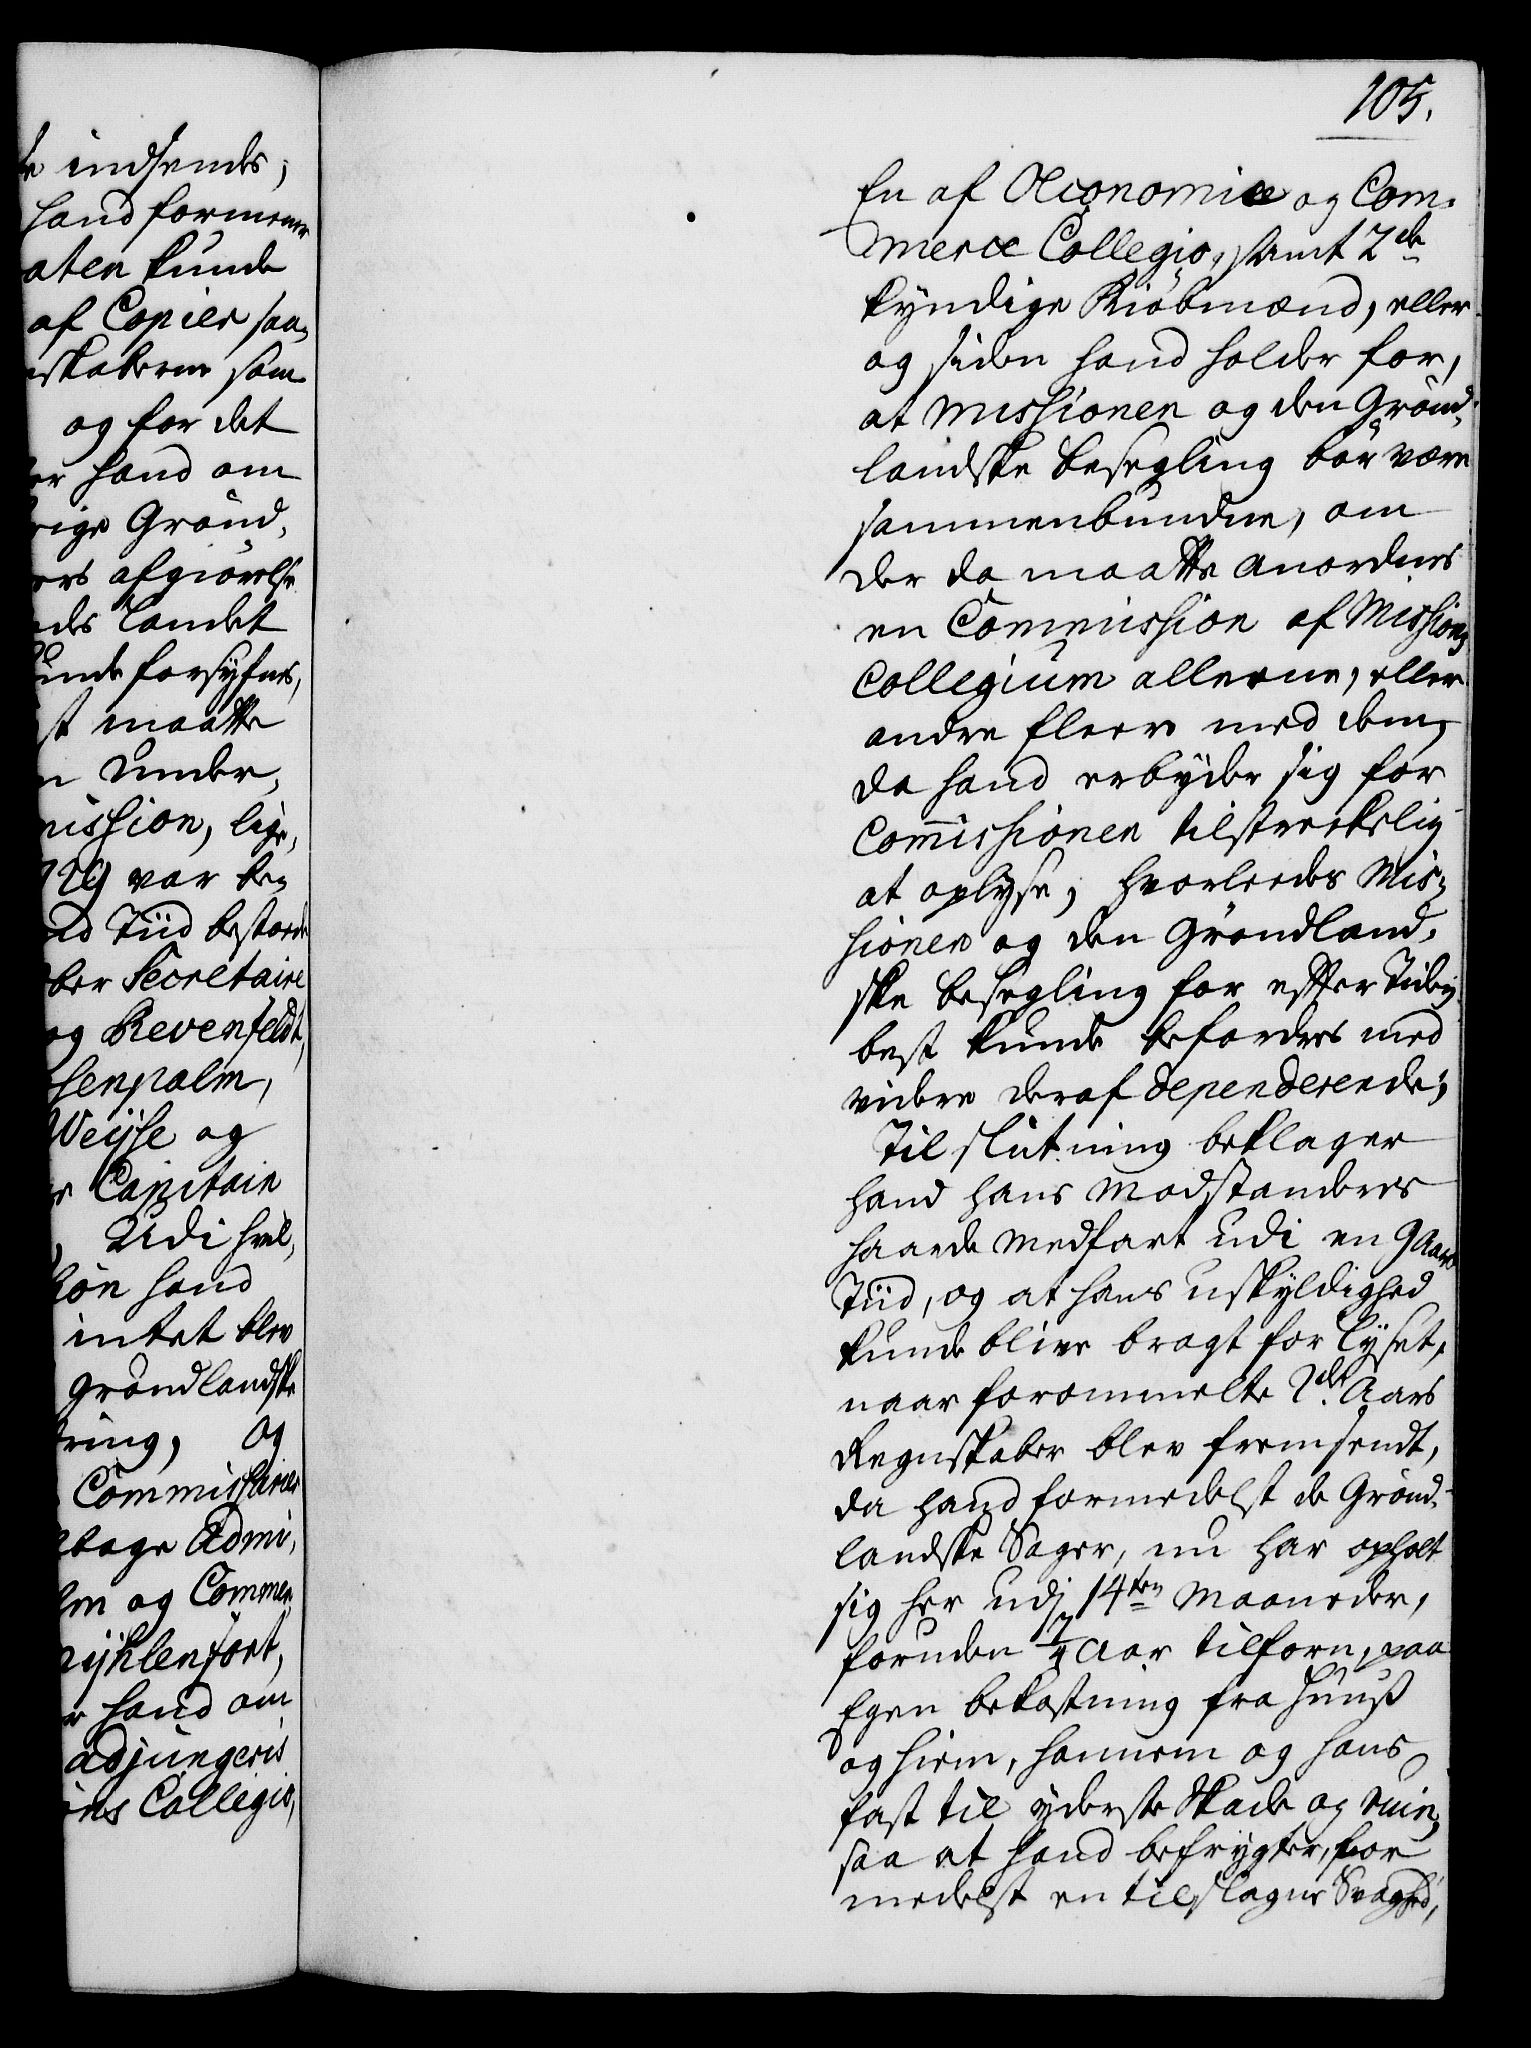 te indsendes,
hand formener
aten kunde
af Copier saa,
skaberne som
og for det
er hand om
rige Grønd,
ers afgiørelse
des Landet
unde forsyfnes,
st maatte
n under,
mission, lige,
729 var be,
d Tiid bestode
ber Secretaire
og Revenfeldt,
henpalm,
Weijse og
r Capitain
, Udi hvil,
køn hand
intet blev
Grøndlandske
tring, og
Commissarier
tbage Admi,
lm og Commer,
ijhlenfort,
r hand om
adjungeris
ons Collegio,
105.
En af Oeconomiæ og Com,
merce Collegio, samt 2de
kyndige Kiøbmænd, eller
og siden hand holder for,
at Missionen og den Grønd,
landske besegling bør være
sammenbundne, om
der da maatte anordnes
en Commission af Missions
Collegium alleene, eller
andre fleere med dem,
da hand erbyder sig for
Commissionen tilstreckelig
at oplyse, hvorleedes Mis,
sionen og den Grøndland,
ske besegling for effter Tiden
best kunde befordres med
videre deraf dependerende,
Til slutning beklager
hand hans Modstanderes
haarde Medfart udi en 9 Aars
Tiid, og at hans uskyldighed
kunde blive bragt for Lyset,
naar forommelte 2de Aars
Regnskaber blev fremsendt,
da hand formedelst de Grønd,
landske Sager, nu har opholt
sig her udj 14ten Maaneder,
foruden Aar tilforn, paa
Egen bekostning fra Huuß
og hiem, hannem og hans
fast til yderste Skade og ruin,
saa at hand befrygter, for
medelst en tilslagne Svaghed,